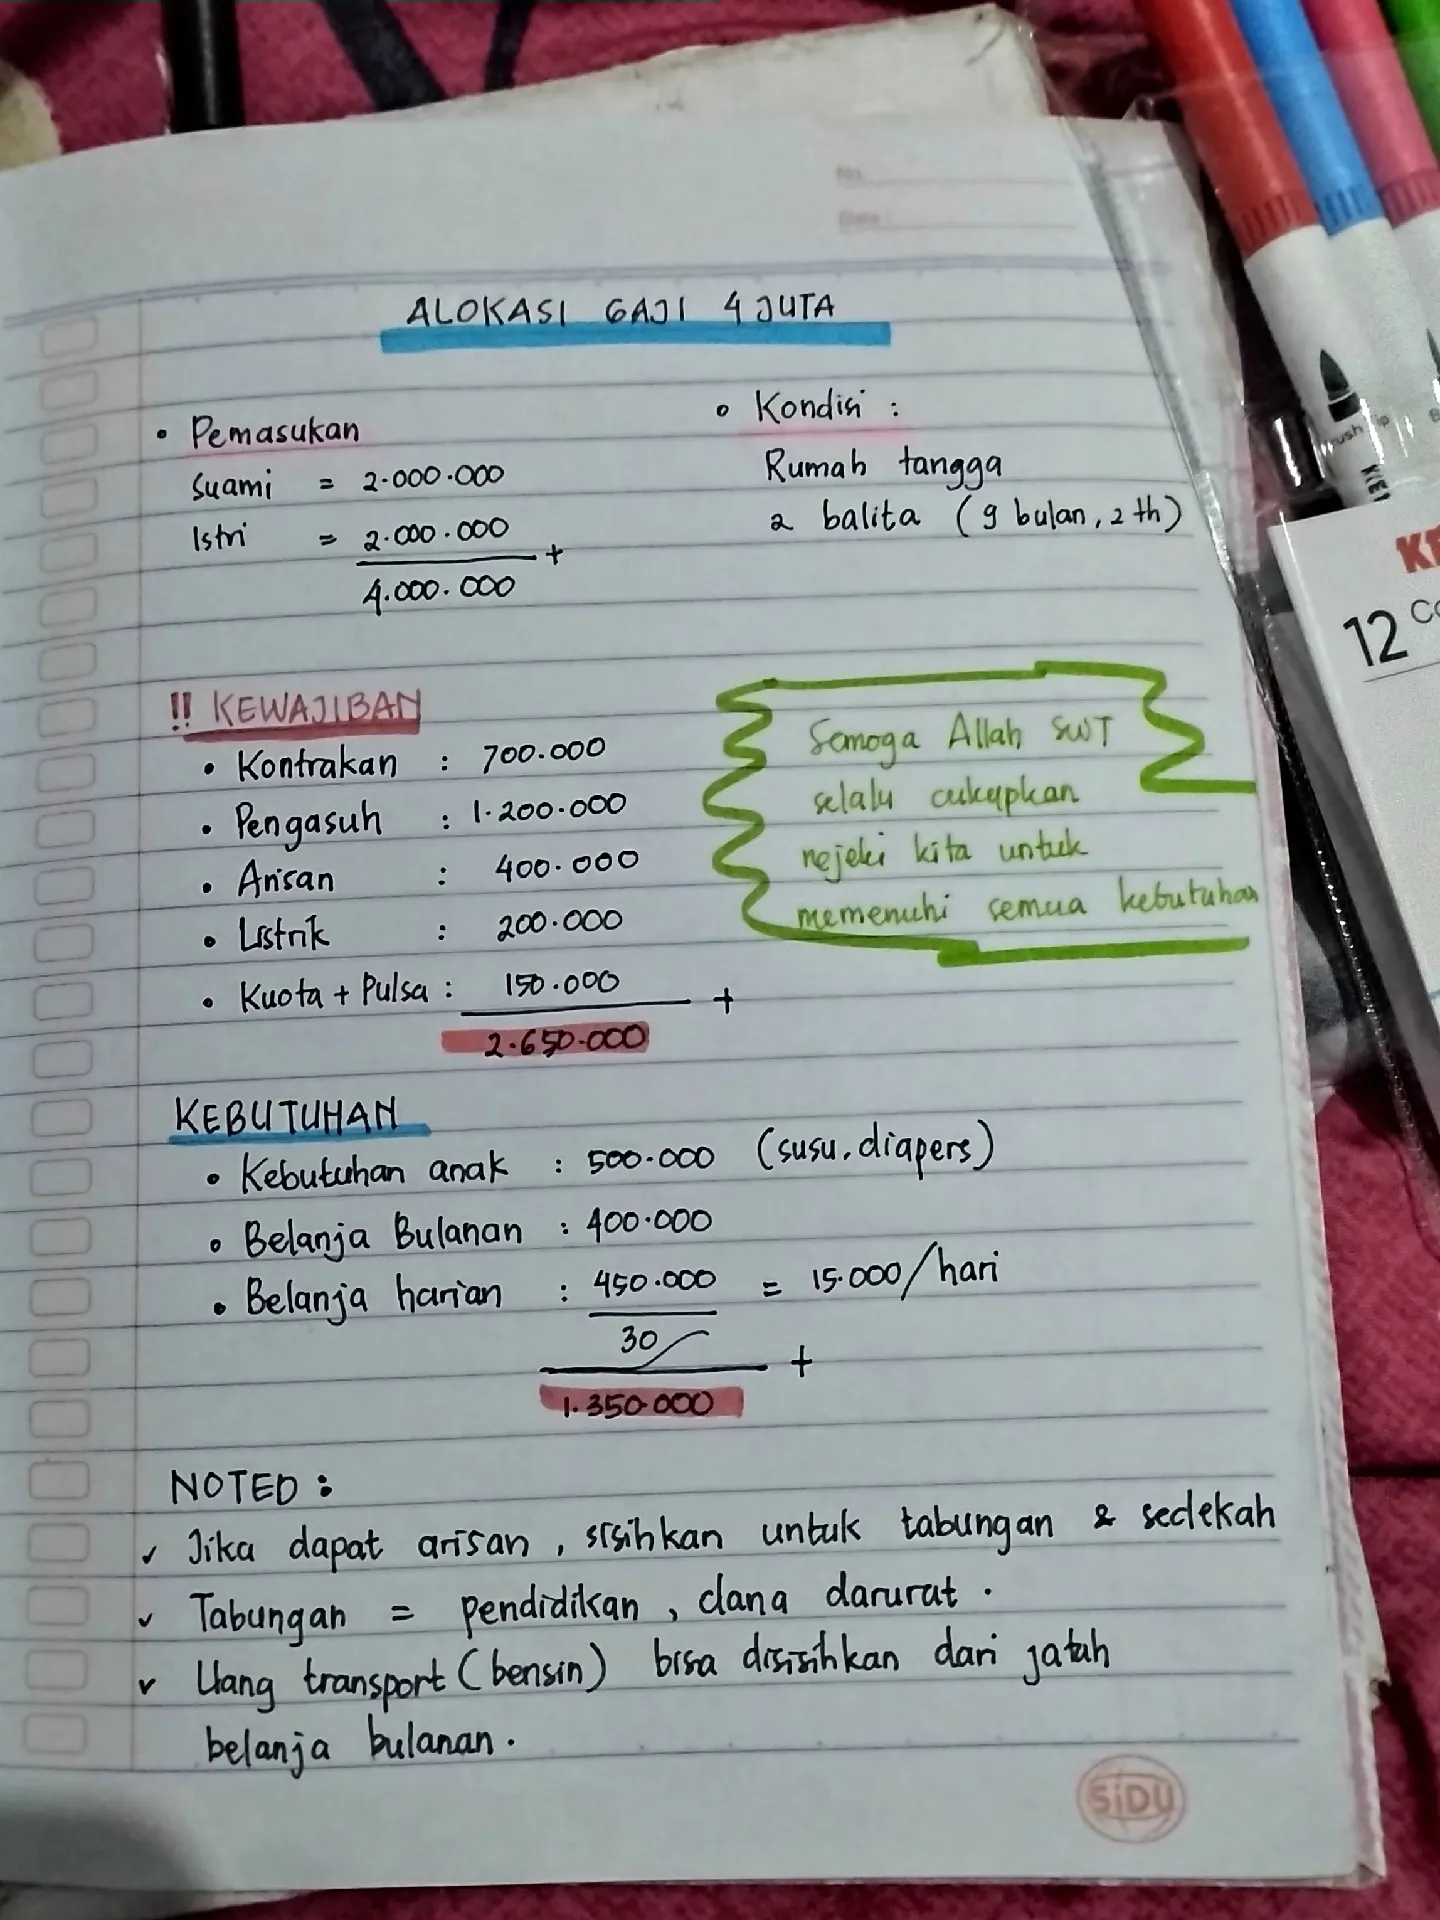 No.
Date :
ALOKASI GAJI 4 JUTA
• Pemasukan
Suami = 2.000.000
Istri = 2.000.000 +
4.000.000
• Kondisi :
Rumah tangga
2 balita (9 bulan, 2 th)
!! KEWAJIBAN
• Kontrakan : 700.000
• Pengasuh : 1.200.000
• Arisan : 400.000
• Listrik : 200.000
• Kuota + Pulsa : 150.000 +
2.650.000
Semoga Allah SWT
selalu cukupkan
rejeki kita untuk
memenuhi semua kebutuhan
KEBUTUHAN
• Kebutuhan anak : 500.000 (susu, diapers)
• Belanja Bulanan : 400.000
• Belanja harian : 450.000 = 15.000/hari
30 +
1.350.000
NOTED :
✓ Jika dapat arisan, sisihkan untuk tabungan & sedekah
✓ Tabungan = pendidikan, dana darurat.
✓ Uang transport (bensin) bisa disisihkan dari jatah
belanja bulanan.
SiDU
12